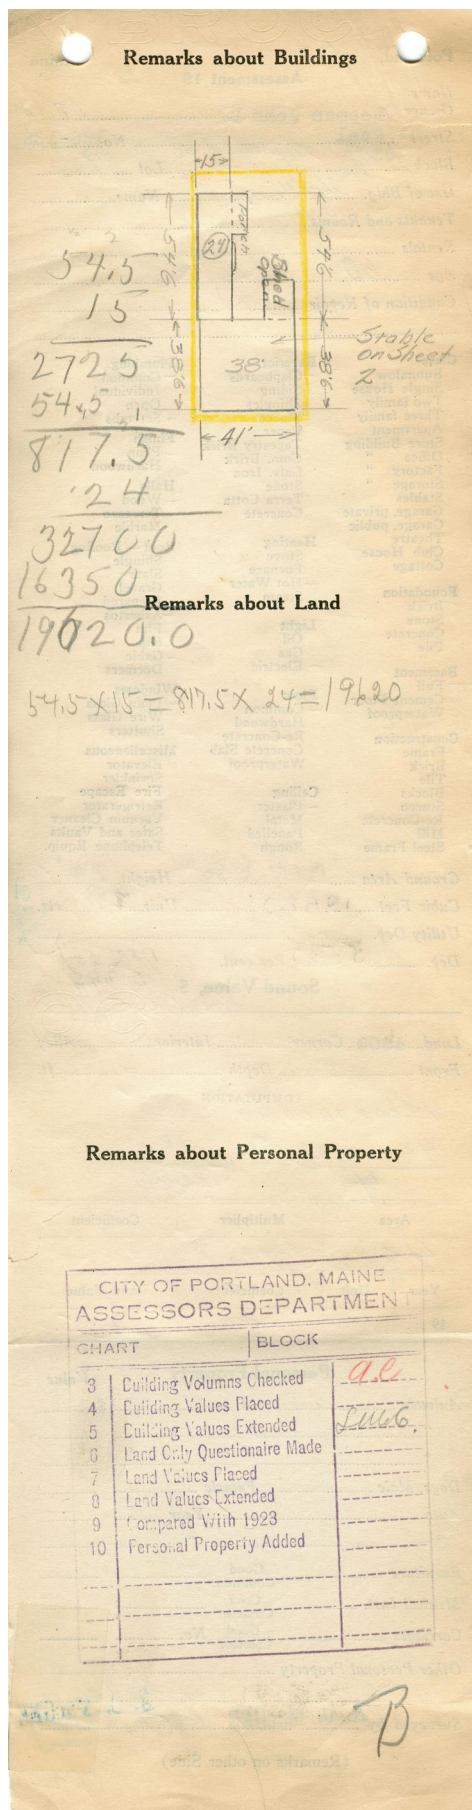 Remarks about Buildings
15
54'6
24
Porch
Shed
open
54'6
38'6
38'
38'6
41'
Stable
on Sheet
2
54.5
15
2725
54.5
817.5
24
32700
16350
19620.0
Remarks about Land
54.5 X 15 = 817.5 X 24 = 19620
Remarks about Personal Property
CITY OF PORTLAND, MAINE
ASSESSORS DEPARTMENT
CHART BLOCK
3 Building Volumns Checked a.c.
4 Building Values Placed
5 Building Values Extended
6 Land Only Questionaire Made
7 Land Values Placed
8 Land Values Extended
9 Compared With 1923
10 Personal Property Added
B